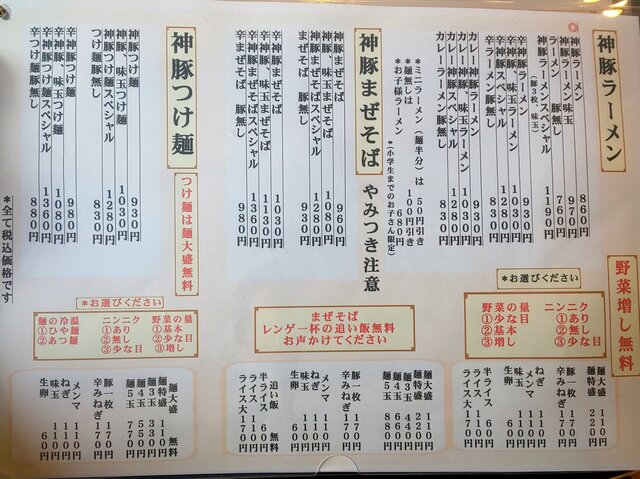 神豚ラーメン
神豚ラーメン 860円
神豚ラーメン味玉 970円
ラーメン 豚無し 760円
神豚ラーメンスペシャル 1190円
(豚3枚、味玉)
辛神豚ラーメン 930円
辛神豚、味玉ラーメン 1030円
辛神豚ラーメンスペシャル 1280円
辛ラーメン豚無し 830円
カレー神豚ラーメン 930円
カレー神豚、味玉ラーメン 1030円
カレー神豚スペシャル 1280円
カレーラーメン豚無し 830円
*ミニラーメン(麺半分)は 50円引き
*麺無しは 100円引き
*お子様ラーメン 680円
*(小学生までのお子さん限定)
野菜増し無料
*お選びください
野菜の量 ニンニク
①少な目 ①あり
②基本 ②無し
③増し ③少な目
麺大盛 110円
麺特盛 220円
豚一枚 170円
辛みねぎ 170円
ねぎ 110円
メンマ 110円
味玉 110円
生卵 60円
半ライス 60円
ライス 110円
ライス大 170円
神豚まぜそば やみつき注意
神豚まぜそば 960円
神豚、味玉まぜそば 1080円
神豚まぜそばスペシャル
まぜそば 豚無し
辛神豚まぜそば 1030円
辛神豚、味玉まぜそば 1130円
辛神豚まぜそばスペシャル
辛まぜそば 豚無し 980円
まぜそば
レンゲ一杯の追い飯無料
お声かけてください
麺大盛 110円
麺特盛 220円
麺3玉 440円
麺4玉 660円
麺5玉 880円
豚一枚 170円
辛みねぎ 170円
メンマ 110円
ねぎ 110円
味玉 110円
生卵 60円
追い飯 無料
半ライス 60円
ライス 110円
ライス大 170円
神豚つけ麺
神豚つけ麺 930円
神豚、味玉つけ麺 1030円
神豚つけ麺スペシャル 1280円
つけ麺豚無し 830円
辛神豚つけ麺 980円
辛神豚、味玉つけ麺 1080円
辛神豚つけ麺スペシャル 1360円
辛つけ麺豚無し 880円
つけ麺は麺大盛無料
*全て税込価格です
*お選びください
麺の冷温 ニンニク 野菜の量
①ひや麺 ①あり ①少な目
②あつ麺 ②無し ②基本
③少な目 ③増し
麺大盛 無料
麺特盛 110円
麺3玉 330円
麺4玉 550円
麺5玉 750円
豚一枚 170円
辛みねぎ 170円
メンマ 110円
ねぎ 110円
味玉 110円
生卵 60円